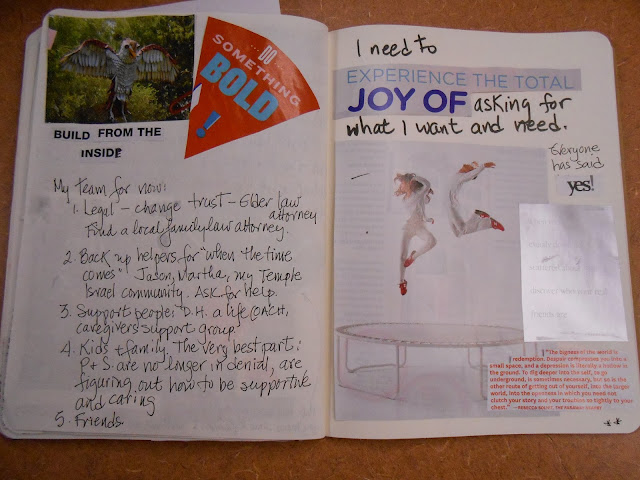 ...DO
SOMETHING
BOLD
!
BUILD FROM THE
INSIDE
My team for now:
1. Legal – change trust – Elder law
attorney
Find a local family law attorney.
2. Back up helpers for "when the time
comes" Jason, Martha, my Temple
Israel community. Ask for help.
3. Support people: D.H. a life coach,
caregivers support group.
4. Kids + family. The very best part:
P + S are no longer in denial, are
figuring out how to be supportive
and caring
5. Friends.
I need to
EXPERIENCE THE TOTAL
JOY OF asking for
what I want and need.
Everyone
has said
yes!
discover who your real
friends are
"The bigness of the world is
redemption. Despair compresses you into a
small space, and a depression is literally a hollow in
the ground. To dig deeper into the self, to go
underground, is sometimes necessary, but so is the
other route of getting out of yourself, into the larger
world, into the openness in which you need not
clutch your story and your troubles so tightly to your
chest." —REBECCA SOLNIT, THE FARAWAY NEARBY